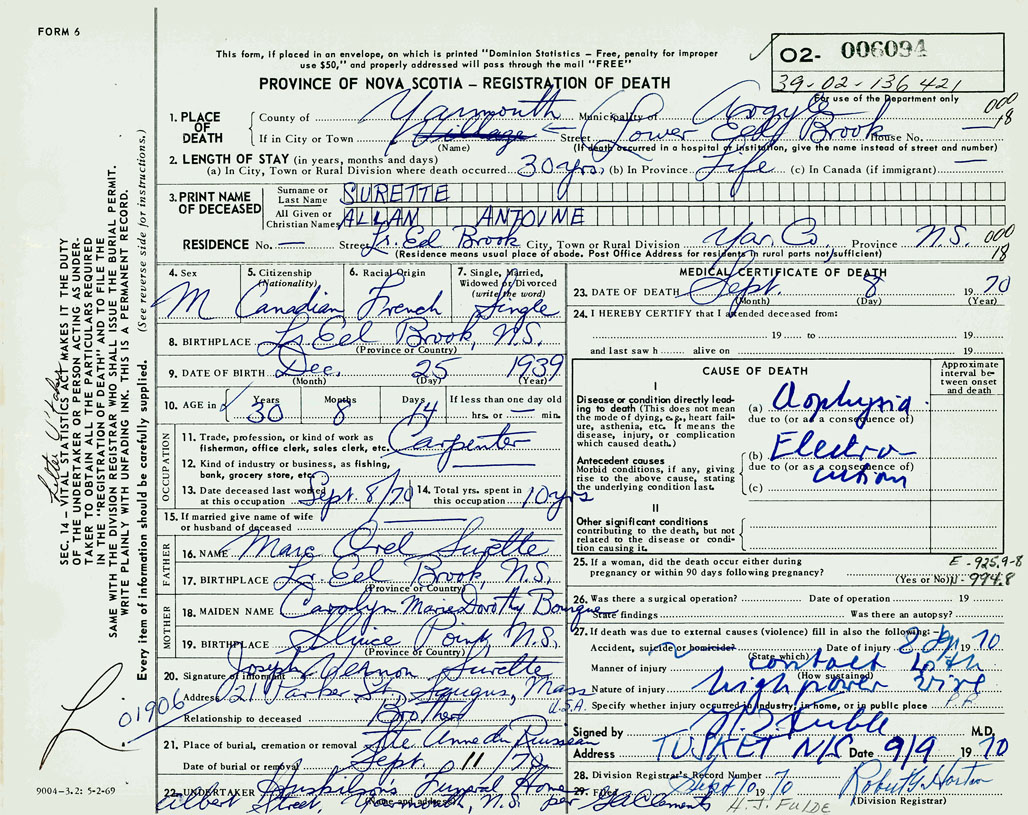 FORM 6
This form, if placed in an envelope, on which is printed "Dominion Statistics – Free, penalty for improper
use $50," and properly addressed will pass through the mail "FREE"
O2- 006094
39-02-136 421
For use of the Department only
PROVINCE OF NOVA SCOTIA – REGISTRATION OF DEATH
000
18
1. PLACE OF DEATH
County of Yarmouth Municipality of Argyle
If in City or Town Village Street Lower Eel Brook House No. —
(Name) (If death occurred in a hospital or institution, give the name instead of street and number)
2. LENGTH OF STAY (in years, months and days)
(a) In City, Town or Rural Division where death occurred 30 yrs. (b) In Province Life (c) In Canada (if immigrant) —
3. PRINT NAME OF DECEASED
Surname or Last Name SURETTE
All Given or Christian Names ALLAN ANTOINE
RESIDENCE No. — Street Lr. Eel Brook City, Town or Rural Division Yar. Co. Province N.S.
000
18
(Residence means usual place of abode. Post Office Address for residents in rural parts not sufficient)
4. Sex M
5. Citizenship (Nationality) Canadian
6. Racial Origin French
7. Single, Married, Widowed or Divorced (write the word) Single
8. BIRTHPLACE Lr. Eel Brook, N.S.
(Province or Country)
9. DATE OF BIRTH Dec. 25 1939
(Month) (Day) (Year)
10. AGE in Years 30 Months 8 Days 14 If less than one day old
hrs. or — min.
OCCUPATION
11. Trade, profession, or kind of work as
fisherman, office clerk, sales clerk, etc. Carpenter
12. Kind of industry or business, as fishing,
bank, grocery store, etc. —
13. Date deceased last worked at this occupation Sept. 8/70
14. Total yrs. spent in this occupation 10 yrs
15. If married give name of wife
or husband of deceased —
FATHER
16. NAME Marc Orel Surette
17. BIRTHPLACE Lr. Eel Brook, N.S.
(Province or Country)
MOTHER
18. MAIDEN NAME Carolyn Marie Dorothy Bourque
19. BIRTHPLACE Sluice Point, N.S.
(Province or Country)
20. Signature of informant Joseph Vernon Surette
Address 21 Parker St., Saugus, Mass
U.S.A.
Relationship to deceased Brother
21. Place of burial, cremation or removal Ste Anne du Ruisseau
Date of burial or removal Sept. 11/70
22. UNDERTAKER Huskilson's Funeral Home
(Name and address)
Albert Street, Yarmouth, N.S. per
MEDICAL CERTIFICATE OF DEATH
23. DATE OF DEATH Sept. 8 1970
(Month) (Day) (Year)
24. I HEREBY CERTIFY that I attended deceased from:
19 to 19
and last saw h alive on 19
CAUSE OF DEATH
Approximate interval between onset and death
I
Disease or condition directly leading to death (This does not mean the mode of dying, e.g., heart failure, asthenia, etc. It means the disease, injury, or complication which caused death.)
(a) Asphyxia
due to (or as a consequence of)
Antecedent causes
Morbid conditions, if any, giving rise to the above cause, stating the underlying condition last.
(b) Electro
due to (or as a consequence of)
(c) cution
II
Other significant conditions
contributing to the death, but not related to the disease or condition causing it.
25. If a woman, did the death occur either during
pregnancy or within 90 days following pregnancy?
(Yes or No)
E - 925.9-8
N - 994.8
26. Was there a surgical operation? Date of operation 19
State findings Was there an autopsy?
27. If death was due to external causes (violence) fill in also the following:
Accident, suicide or homicide? Date of injury 19 70
(State which)
Manner of injury contact with
(How sustained)
Nature of injury high power wire
Specify whether injury occurred in industry, in home, or in public place
Signed by M.D.
Address TUSKET N/S Date 9/9 1970
28. Division Registrar's Record Number
29. Filed Sept 10 1970
(Division Registrar)
H. J. FULDE
SEC. 14 – VITAL STATISTICS ACT MAKES IT THE DUTY
OF THE UNDERTAKER OR PERSON ACTING AS UNDER-
TAKER TO OBTAIN ALL THE PARTICULARS REQUIRED
IN THE "REGISTRATION OF DEATH" AND TO FILE THE
SAME WITH THE DIVISION REGISTRAR WHO SHALL ISSUE THE BURIAL PERMIT.
WRITE PLAINLY WITH UNFADING INK. THIS IS A PERMANENT RECORD.
Every item of information should be carefully supplied. (See reverse side for instructions.)
01906
9004-3.2: 5-2-69